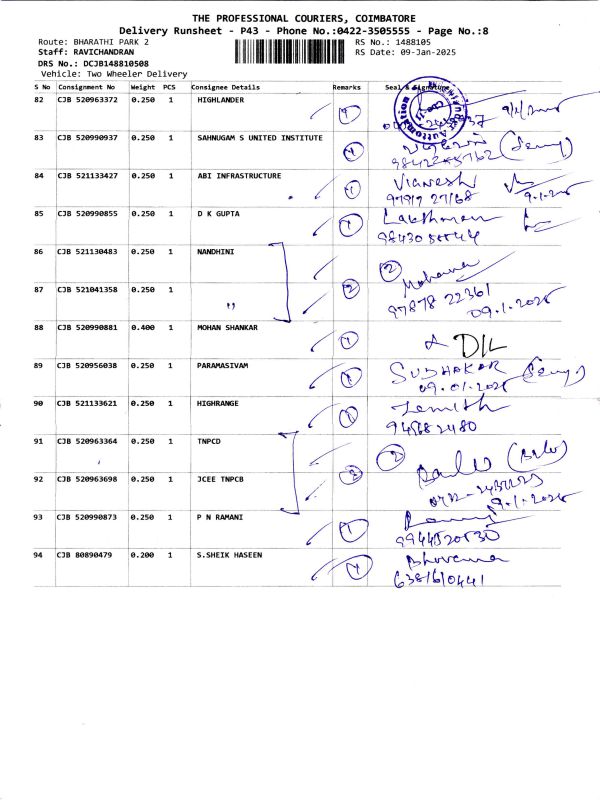 THE PROFESSIONAL COURIERS, COIMBATORE
Delivery Runsheet - P43 - Phone No.:0422-3505555 - Page No.:8
Route: BHARATHI PARK 2 RS No.: 1488105
Staff: RAVICHANDRAN RS Date: 09-Jan-2025
DRS No.: DCJB148810508
Vehicle: Two Wheeler Delivery
S No Consignment No Weight PCS Consignee Details Remarks Seal & Signature
82 CJB 520963372 0.250 1 HIGHLANDER 1
83 CJB 520990937 0.250 1 SAHNUGAM S UNITED INSTITUTE 1
84 CJB 521133427 0.250 1 ABI INFRASTRUCTURE 1 Vignesh
9.1.2025
85 CJB 520990855 0.250 1 D K GUPTA 1 Lakshmanan
86 CJB 521130483 0.250 1 NANDHINI 2 Mohana
87 CJB 521041358 0.250 1 " 2 97878 22361
09.1.2025
88 CJB 520990881 0.400 1 MOHAN SHANKAR 1 DIL
89 CJB 520956038 0.250 1 PARAMASIVAM 1 SUDHAKAR
09.01.2025
90 CJB 521133621 0.250 1 HIGHRANGE 1
91 CJB 520963364 0.250 1 TNPCD 2
92 CJB 520963698 0.250 1 JCEE TNPCB
9.1.2025
93 CJB 520990873 0.250 1 P N RAMANI 1
94 CJB 80890479 0.200 1 S.SHEIK HASEEN 1 Bhuvana
6381610441